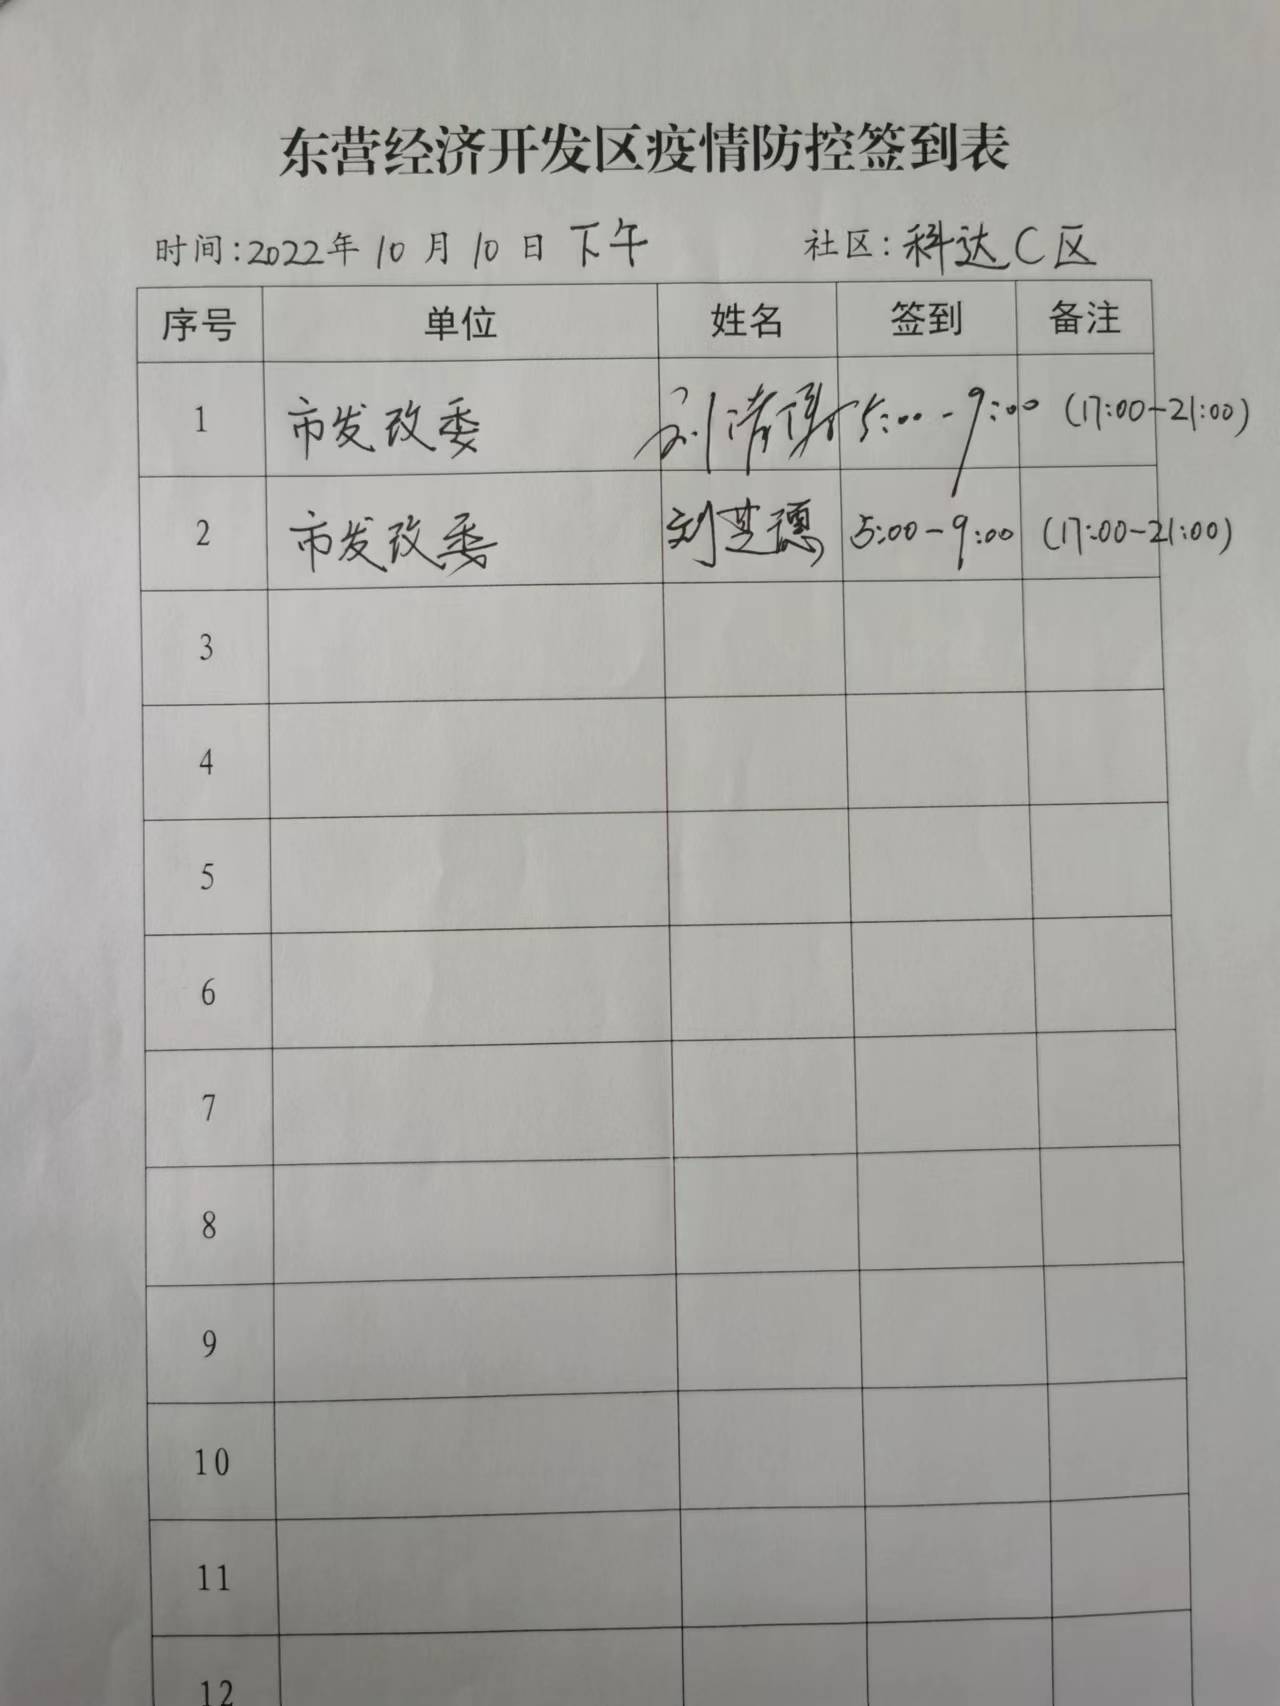 东营经济开发区疫情防控签到表
时间:2022年10月10日下午 社区:科达C区
序号 单位 姓名 签到 备注
1 市发改委 刘 5:00-9:00 (17:00-21:00)
2 市发改委 刘芝穗 5:00-9:00 (17:00-21:00)
3
4
5
6
7
8
9
10
11
12